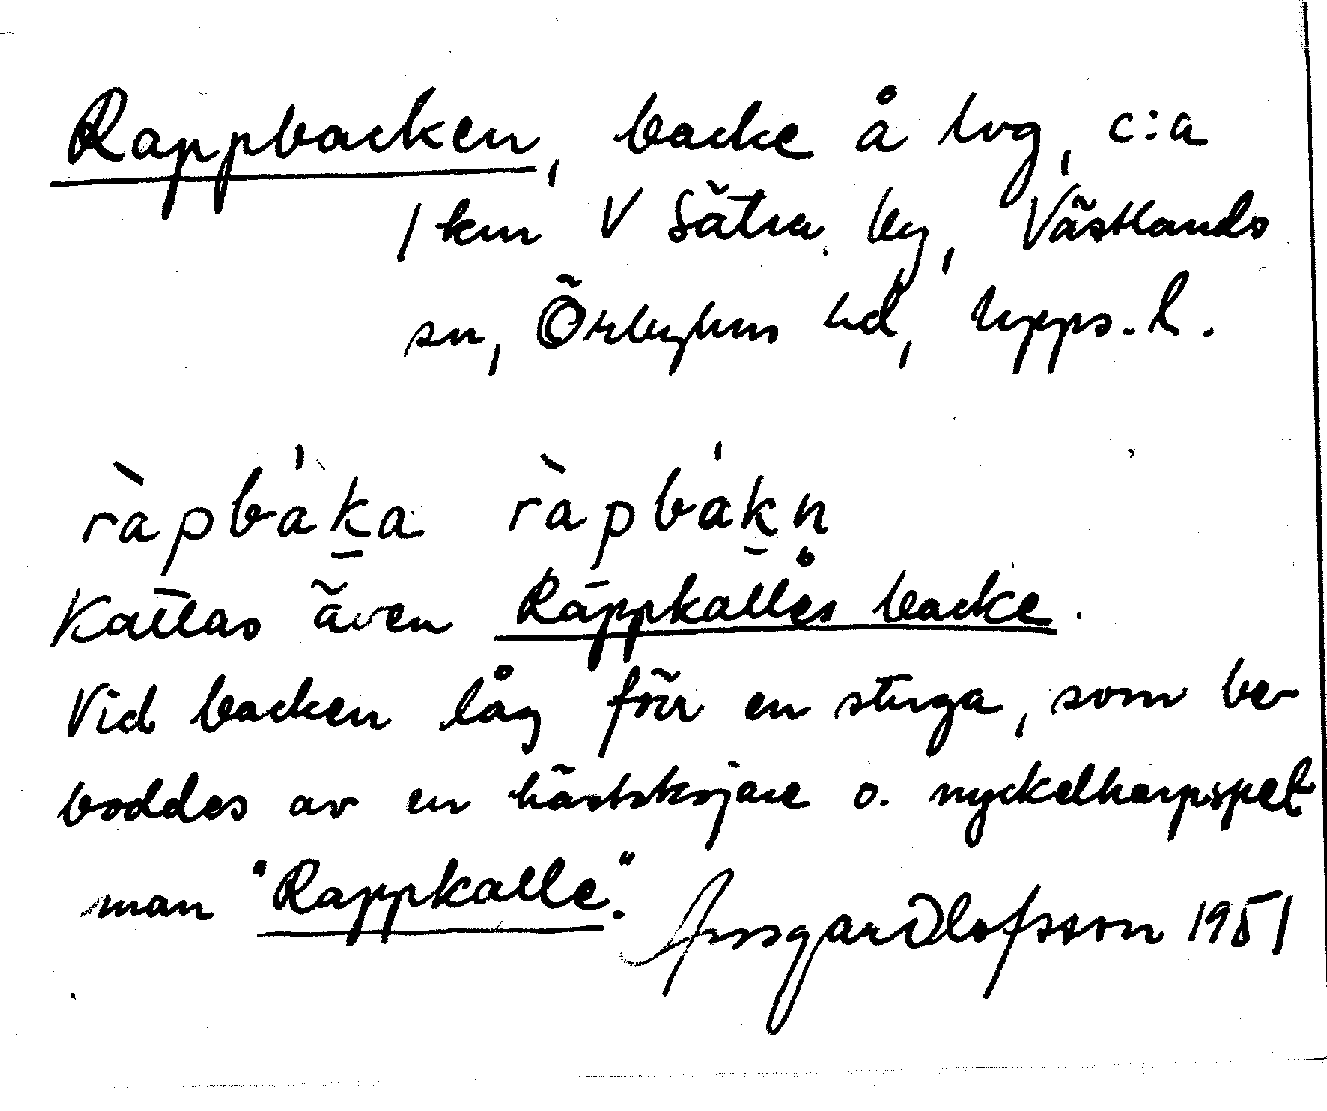 Rappbacken, backe å lvg, c:a
1 km V Sätra by, Västlands
sn, Örbyhus hd, Upps. l.
ràpbáka ràpbákn̥
Kallas även Rappkalles backe.
Vid backen låg förr en stuga, som be-
boddes av en hästskojare o. nyckelharpspel
man "Rappkalle".
Ansgar Olofsson 1951